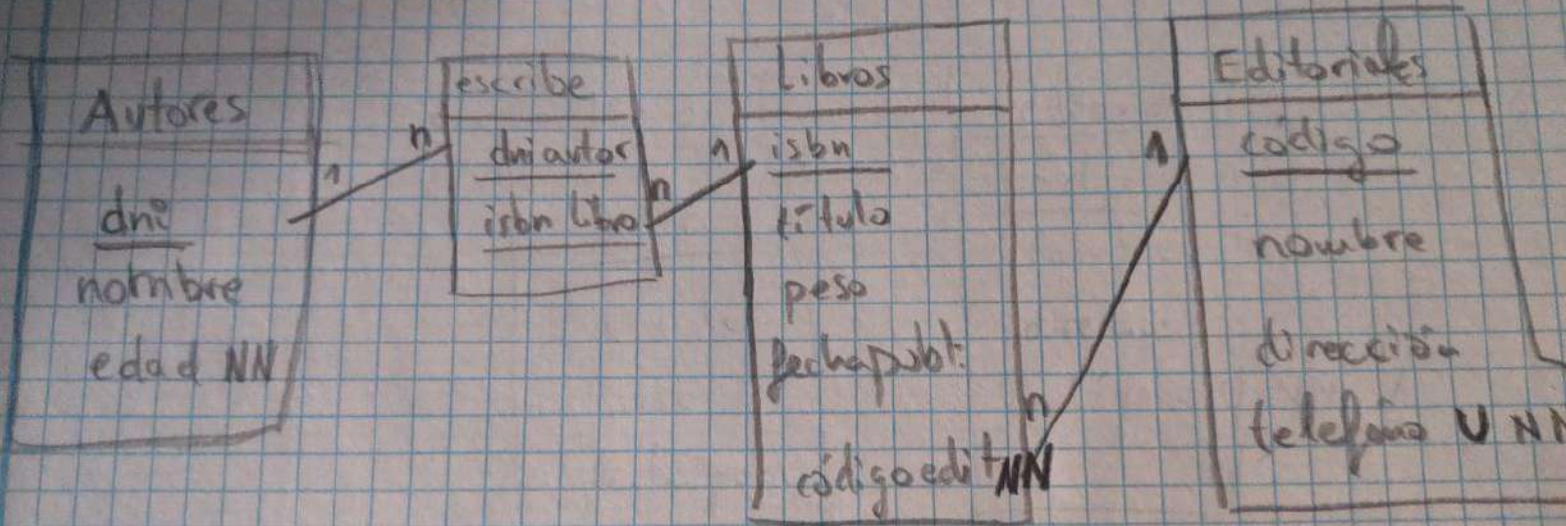 Autores
dni
nombre
edad NN
1
n
escribe
dni autor
isbn libro
n
1
Libros
isbn
título
peso
fechapubl.
códigoedit NN
n
1
Editoriales
código
nombre
dirección
teléfono U NN